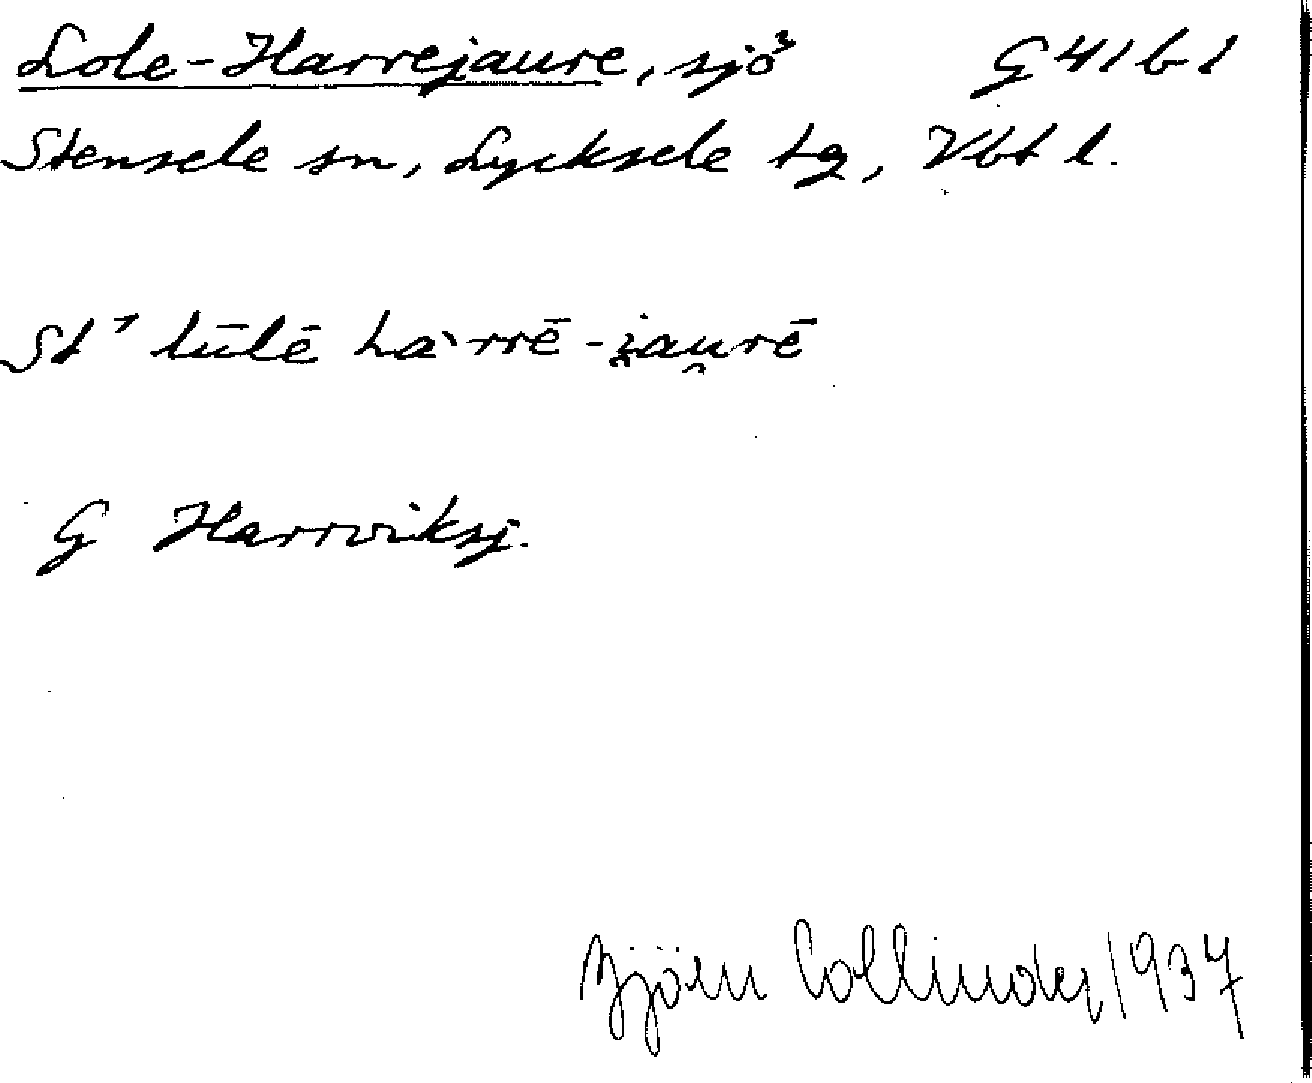 Lole-Harrejaure, sjö² G 41 b 1
Stensele sn, Lycksele tg, Vbt l.
St' lūlē ha`rrē-i̯au̯rē
G Harrviksj.
Björn Collinder 1937